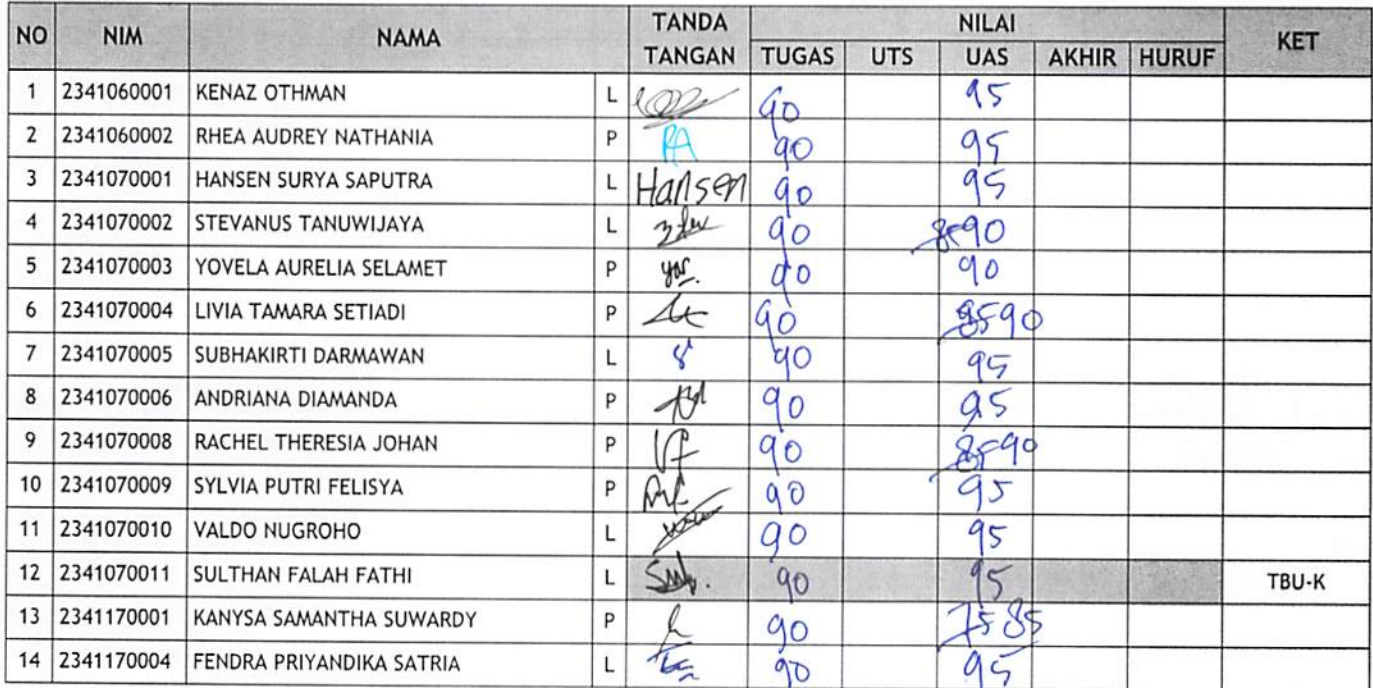 NO NIM NAMA TANDA TANGAN NILAI KET
TUGAS UTS UAS AKHIR HURUF
1 2341060001 KENAZ OTHMAN L 90 95
2 2341060002 RHEA AUDREY NATHANIA P RA 90 95
3 2341070001 HANSEN SURYA SAPUTRA L Hansen 90 95
4 2341070002 STEVANUS TANUWIJAYA L 90 90
5 2341070003 YOVELA AURELIA SELAMET P 90 90
6 2341070004 LIVIA TAMARA SETIADI P 90 90
7 2341070005 SUBHAKIRTI DARMAWAN L 90 95
8 2341070006 ANDRIANA DIAMANDA P 90 95
9 2341070008 RACHEL THERESIA JOHAN P 90 85 90
10 2341070009 SYLVIA PUTRI FELISYA P 90 95
11 2341070010 VALDO NUGROHO L 90 95
12 2341070011 SULTHAN FALAH FATHI L 90 95 TBU-K
13 2341170001 KANYSA SAMANTHA SUWARDY P 90 75 85
14 2341170004 FENDRA PRIYANDIKA SATRIA L 90 95